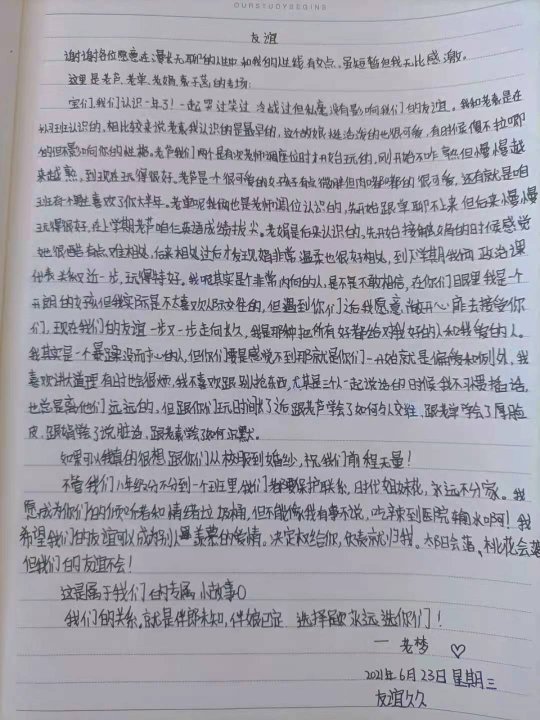 OURSTUDYBEGINS
友谊
谢谢各位愿意在漫长无聊的人生中和我的人生线有交点,虽短暂但我无比感激。
这里是老芦、老单、老娟、袁子蕊的专场:
宝们,我们认识一年了!一起哭过笑过 冷战过但丝毫没有影响我们的友谊。我和老袁是在
认识的,相比较来说老袁我认识的是最早的,这个姑娘挺活泼的也很可爱,有时候傻不拉唧
的但不影响你的性格。老芦我们两个是有次老师调座位时才开始玩的,刚开始不咋熟但慢慢越
来越熟,到现在玩得很好。老芦是个很可爱的女孩子有点傲娇但内嘟嘟的很可爱,还有就是咱
班有个男生喜欢了你大半年。老单呢我们也是老师调位认识的,先开始跟单聊不上来但后来慢慢
玩得很好,在上学期老芦咱仨最落成绩拔尖。老娟是后来认识的,先开始接触娟的时候感觉
她很酷有点难相处,后来相处过后才发现娟非常温柔也很好相处,到下学期我俩政治课
代表关系又近一步,玩得特好。我呢其实是个非常内向的人,是不是不敢相信,在你们眼里我是一个
开朗的女孩但我实际是不太喜欢人际交往的,但遇到你们之后我愿意敞开心扉去接受你
们,现在我们的友谊一步又一步走向长久,我是那种把所有好都给对我好的人和我爱的人。
我其实是一个暴躁没耐心的人,但你们要是感觉不到那就是你们一开始就是偏爱和例外,我
喜欢讲大道理有时也会很烦,我不喜欢跟别人抢东西,尤其是三个人一起说话的时候我不爱插话,
也总是离他们远远的,但跟你们玩时间久了之后跟老芦学会了如何与人交往,跟老单学会了厚脸
皮,跟娟学会了说脏话,跟老袁学会了如何沉默。
如果可以我真的很想跟你们从校服到婚纱,祝我们前程无量!
不管我们八年级分不分到一个班里,我们都要保护联系,时代姐妹花,永远不分家。我
愿成为你们的倾听者和情绪垃圾桶,但不能像我有事不说,吃辣到医院输水啊!我
希望我们的友谊可以成为别人羡慕的爱情。决定权给你,负责就归我。太阳会落、桃花会落
但我们的友谊不会!
这是属于我们的专属小故事〇
我们的关系,就是伴郎未知,伴娘已定 选择题永远选你们!
一 老梦 ♡
2021年6月23日星期三
友谊久久